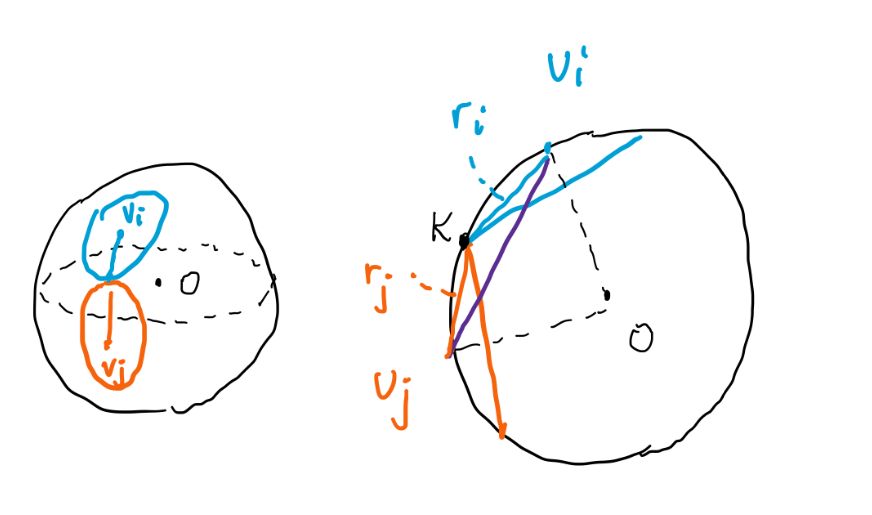 vi
O
vj
vi
ri
K
rj
O
vj